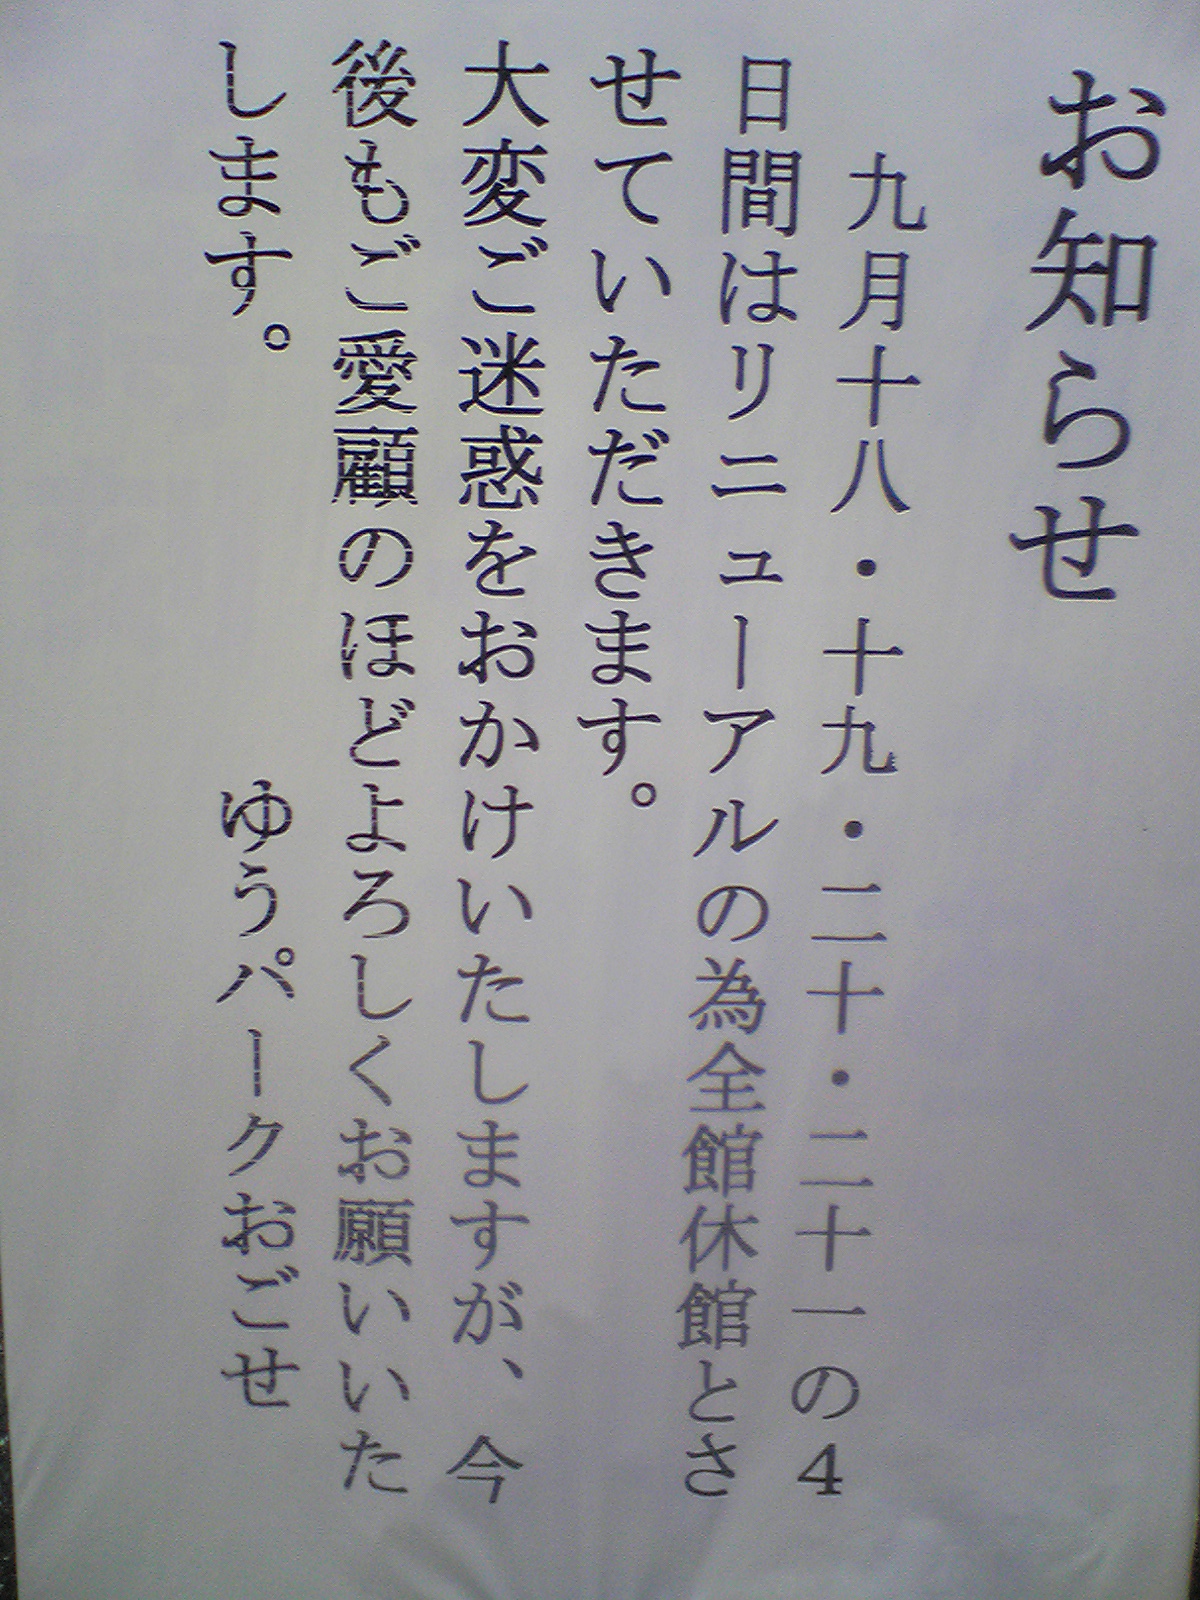 お知らせ
九月十八・十九・二十・二十一の4
日間はリニューアルの為全館休館とさ
せていただきます。
大変ご迷惑をおかけいたしますが、今
後もご愛顧のほどよろしくお願いいた
します。
ゆうパークおごせ